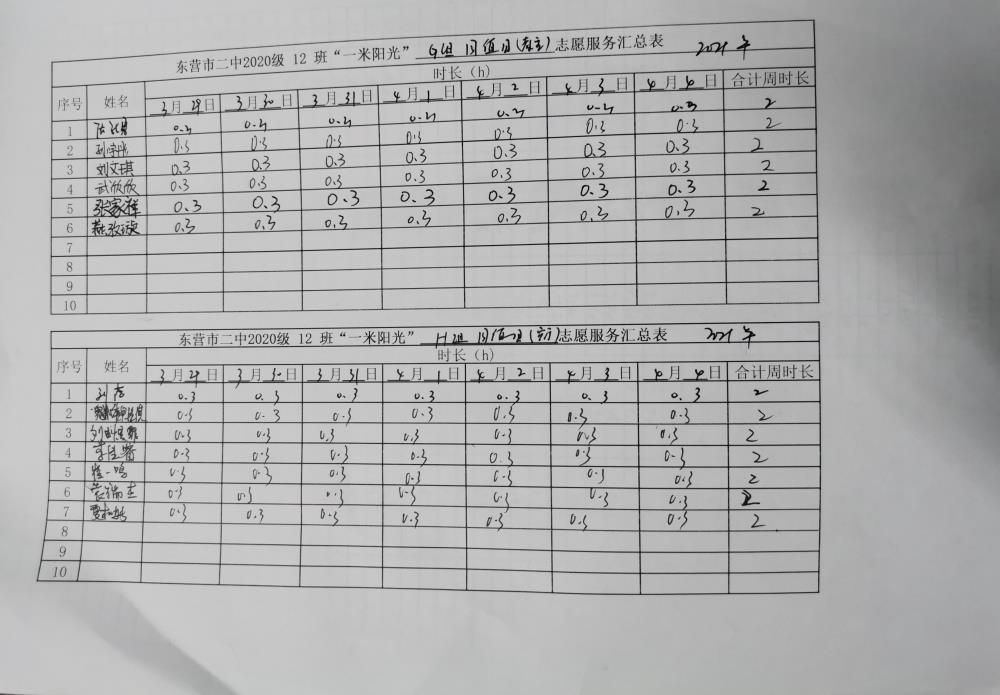 东营市二中2020级 12 班“一米阳光” G组 周值日() 志愿服务汇总表 2021 年
序号 姓名 时长（h） 合计周时长
3月29日 3月30日 3月31日 4月1日 4月2日 4月3日 4月4日
1 0.3 0.3 0.3 0.3 0.3 0.3 0.3 2
2 0.3 0.3 0.3 0.3 0.3 0.3 0.3 2
3 刘文琪 0.3 0.3 0.3 0.3 0.3 0.3 0.3 2
4 武欣欣 0.3 0.3 0.3 0.3 0.3 0.3 0.3 2
5 张家祥 0.3 0.3 0.3 0.3 0.3 0.3 0.3 2
6 0.3 0.3 0.3 0.3 0.3 0.3 0.3 2
7
8
9
10
东营市二中2020级 12 班“一米阳光” H组 周值日() 志愿服务汇总表 2021 年
序号 姓名 时长（h） 合计周时长
3月29日 3月30日 3月31日 4月1日 4月2日 4月3日 4月4日
1 0.3 0.3 0.3 0.3 0.3 0.3 0.3 2
2 0.3 0.3 0.3 0.3 0.3 0.3 0.3 2
3 0.3 0.3 0.3 0.3 0.3 0.3 0.3 2
4 0.3 0.3 0.3 0.3 0.3 0.3 0.3 2
5 崔一鸣 0.3 0.3 0.3 0.3 0.3 0.3 0.3 2
6 0.3 0.3 0.3 0.3 0.3 0.3 0.3 2
7 0.3 0.3 0.3 0.3 0.3 0.3 0.3 2
8
9
10